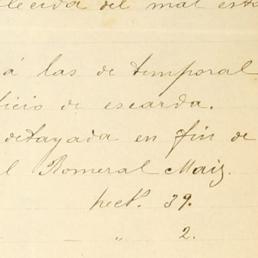 del mal est
á las de temporal
ficio de escarda.
detayada en fin de
l Romeral Maiz.
hect.s 39.
" 2.